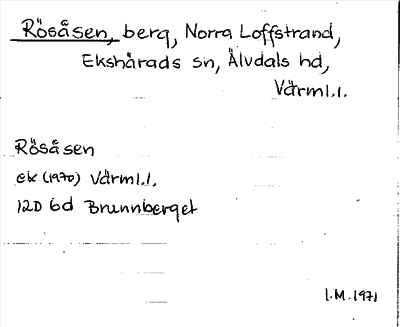 Rösåsen, berg, Norra Loffstrand,
Ekshärads sn, Älvdals hd,
Värml.l.
Rösåsen
ek (1970) Värml.l.
12D 6d Brunnberget
I.M. 1971